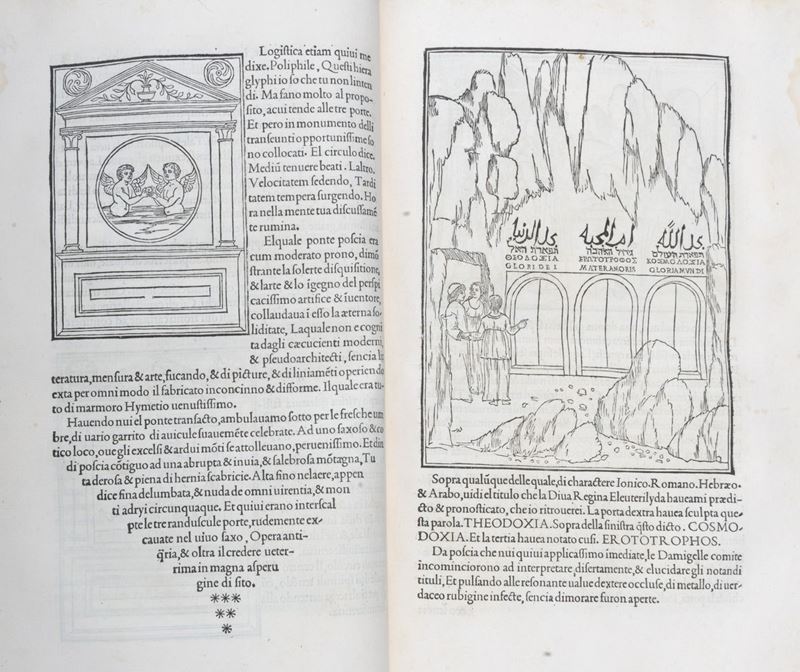 Logistica etiam quiui me
dixe. Poliphile, Questi hiera
glyphi io so che tu non linten
di. Ma fano molto al propo-
sito, a cui tende alle tre porte.
Et pero in monumento delli
transeunti opportunissime so
no collocati. El circulo dice.
Mediũ tenuere beati. Laltro.
Velocitatem sedendo, Tardi
tatem tempera surgendo. Ho
ra nella mente tua discussamẽ
te rumina.
Elquale ponte poscia era
cum moderato prono, dimõ
strante la solerte disquisitione,
& larte & lo igegno del perspi
cacissimo artifice & iuentore,
collaudaua i esso la æterna so-
liditate, Laquale non e cogni
ta dagli cæcucienti moderni,
& pseudoarchitecti, sencia li
teratura, mensura & arte, fucando, & di picture, & di liniamẽti operiendo
exta per omni modo il fabricato inconcinno & difforme. Ilquale era tu-
to di marmoro Hymetio uenustissimo.
Hauendo nui el ponte transacto, ambulauamo sotto per le fresche um
bre, di uario garrito di auicule suauemẽte celebrate. Ad uno saxoso & co
tico loco, oue gli excelsi & ardui mõti se attolleuano, peruenissimo. Et din
di poscia cõtiguo ad una abrupta & inuia, & salebrosa mõtagna, Tu
ta derosa & piena di hernia scabricie. Alta fino nelaere, appen
dice fina delumbata, & nuda de omni uirentia, & mon
ti adryi circunquaque. Et quiui erano interscal
pte le tre randuscule porte, rudemente ex-
cauate nel uiuo saxo, Opera anti-
q̃ria, & oltra il credere ueter-
rima in magna asperu
gine di sito.
***
**
*
ΘΕΟΔΟΞΙΑ ΕΡΩΤΟΤΡΟΦΟΣ ΚΟΣΜΟΔΟΞΙΑ
GLORI DEI MATER AMORIS GLORIA MVNDI
Sopra qualũque delle quale, di charactere Ionico. Romano. Hebræo.
& Arabo, uidi el titulo che la Diua Regina Eleuterilyda haueami prædi-
cto & pronosticato, che io ritrouerei. La porta dextra hauea sculpta que-
sta parola. THEODOXIA. Sopra della sinistra q̃sto dicto. COSMO-
DOXIA. Et la tertia hauea notato cusi. EROTOTROPHOS.
Da poscia che nui quiui applicassimo imediate, le Damigelle comite
incominciorono ad interpretare, disertamente, & elucidare gli notandi
tituli, Et pulsando alle resonante ualue dextere occluse, di metallo, di uer-
daceo rubigine infecte, sencia dimorare furon aperte.